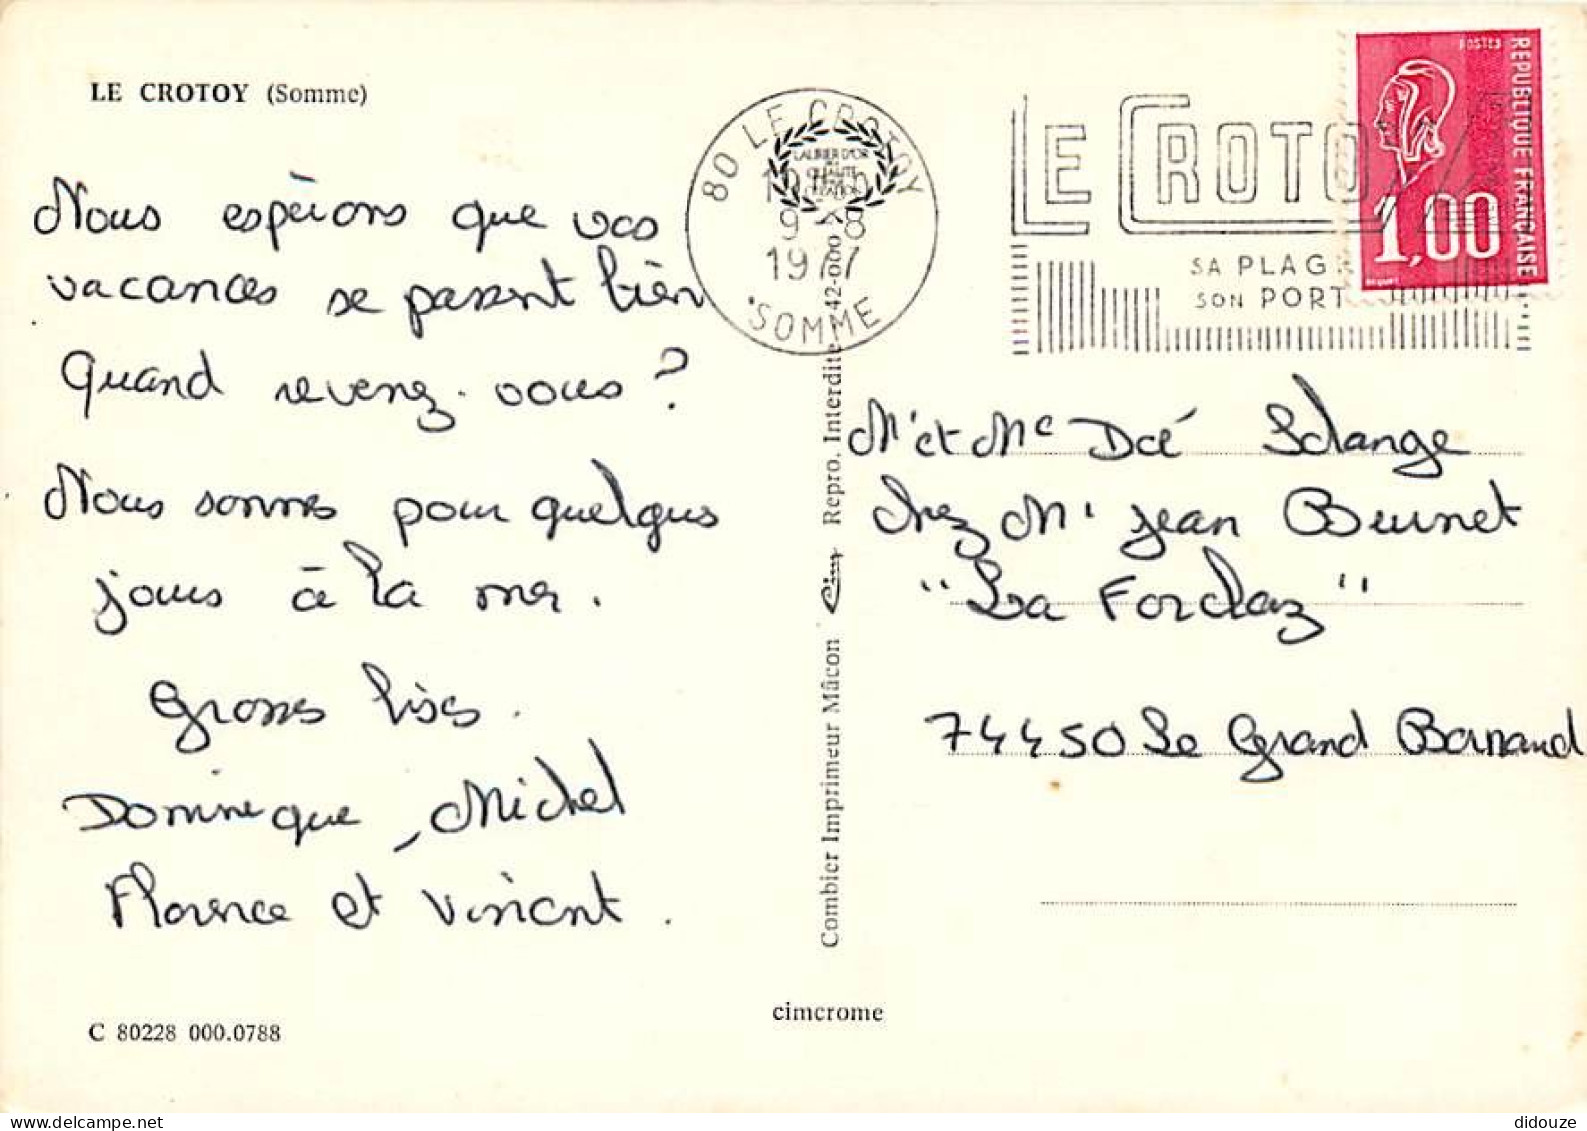 LE CROTOY (Somme)
Nous espérons que vos
vacances se passent bien
Quand revenez-vous ?
Nous sommes pour quelques
jours à la mer.
Grosses bises.
Dominique, Michel
Florence et Vincent.
C 80228 000.0788
80 LE CROTOY
9-8
1977
SOMME
LAURIER D'OR
QUALITÉ
Combier Imprimeur Mâcon Cim Repro. Interdite 42-000
cimcrome
LE CROTOY
SA PLAGE
SON PORT
POSTES
REPUBLIQUE FRANÇAISE
1,00
BEQUET
Mr et Me Doé Solange
chez Mr Jean Brunet
"La Forclaz"
74450 Le Grand Bornand
didouze